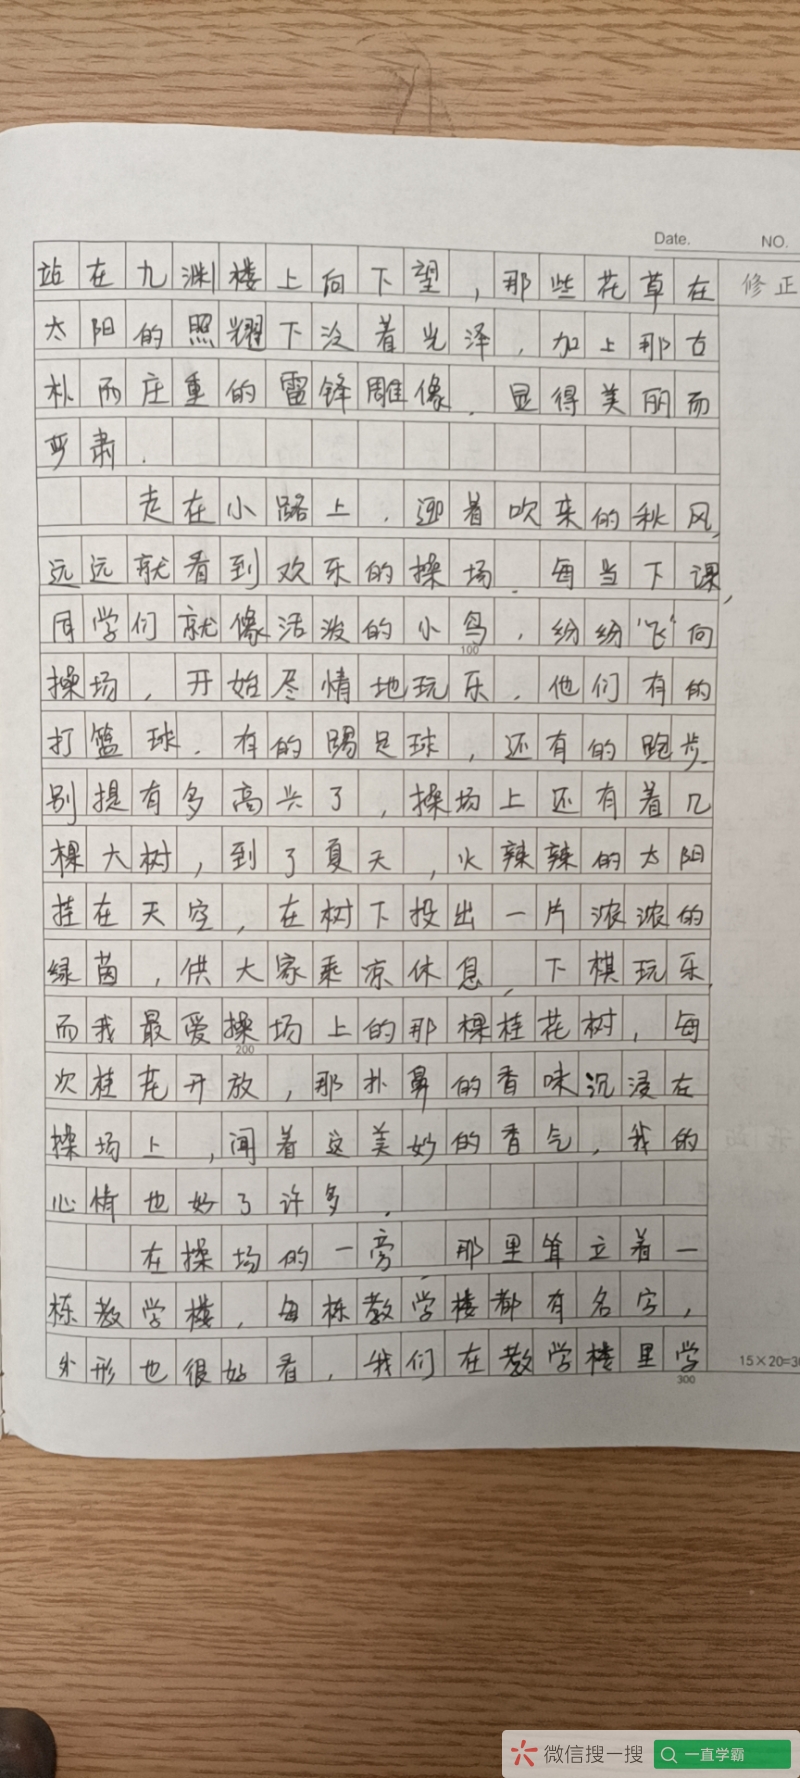 Date.
NO.
站在九渊楼上向下望，那些花草在
修正
太阳的照耀下泛着光泽，加上那古
朴而庄重的雷锋雕像，显得美丽而
严肃．
走在小路上，迎着吹来的秋风，
远远就看到欢乐的操场．每当下课，
同学们就像活泼的小鸟，纷纷“飞”向
100
操场，开始尽情地玩乐，他们有的
打篮球．有的踢足球，还有的跑步．
别提有多高兴了，操场上还有着几
棵大树，到了夏天，火辣辣的太阳
挂在天空，在树下投出一片浓浓的
绿茵，供大家乘凉休息，下棋玩乐，
而我最爱操场上的那棵桂花树，每
200
次桂花开放，那扑鼻的香味沉浸在
操场上，闻着这美妙的香气，我的
心情也好了许多．
在操场的一旁，那里耸立着一
栋教学楼，每栋教学楼都有名字，
外形也很好看，我们在教学楼里学
15×20=30
300
微信搜一搜
一直学霸